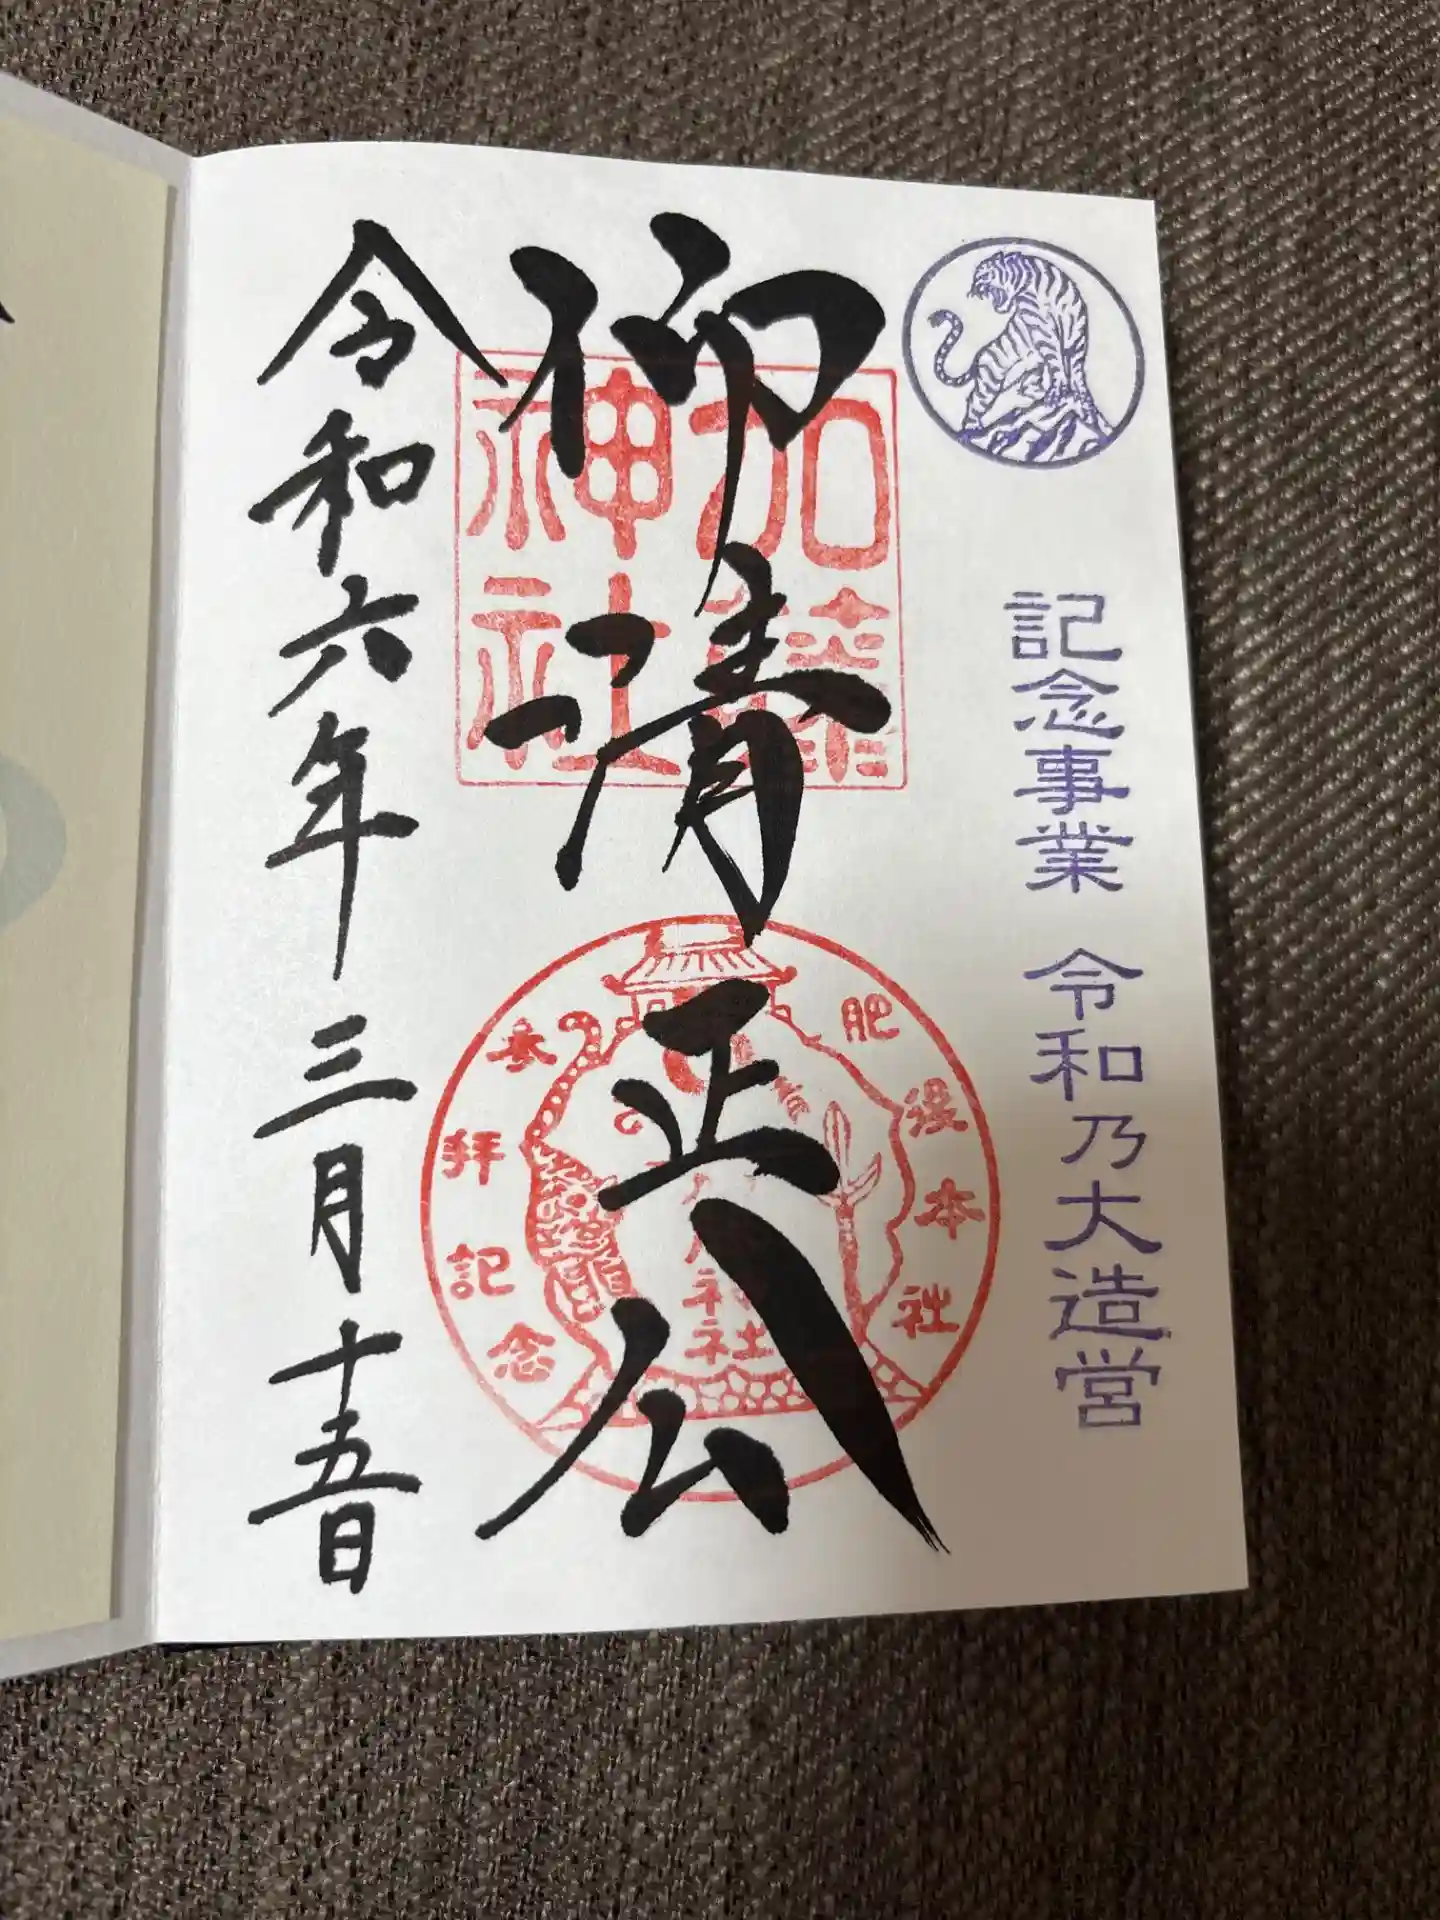 記念事業 令和乃大造営
仰清正公
加藤
神社
肥後本社
参拝記念
神社
令和六年三月十五日